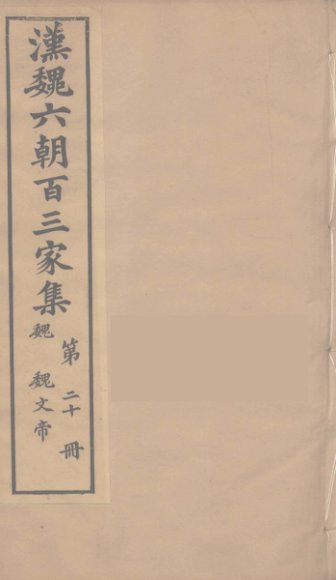 漢魏六朝百三家集
第二十冊
魏
魏文帝